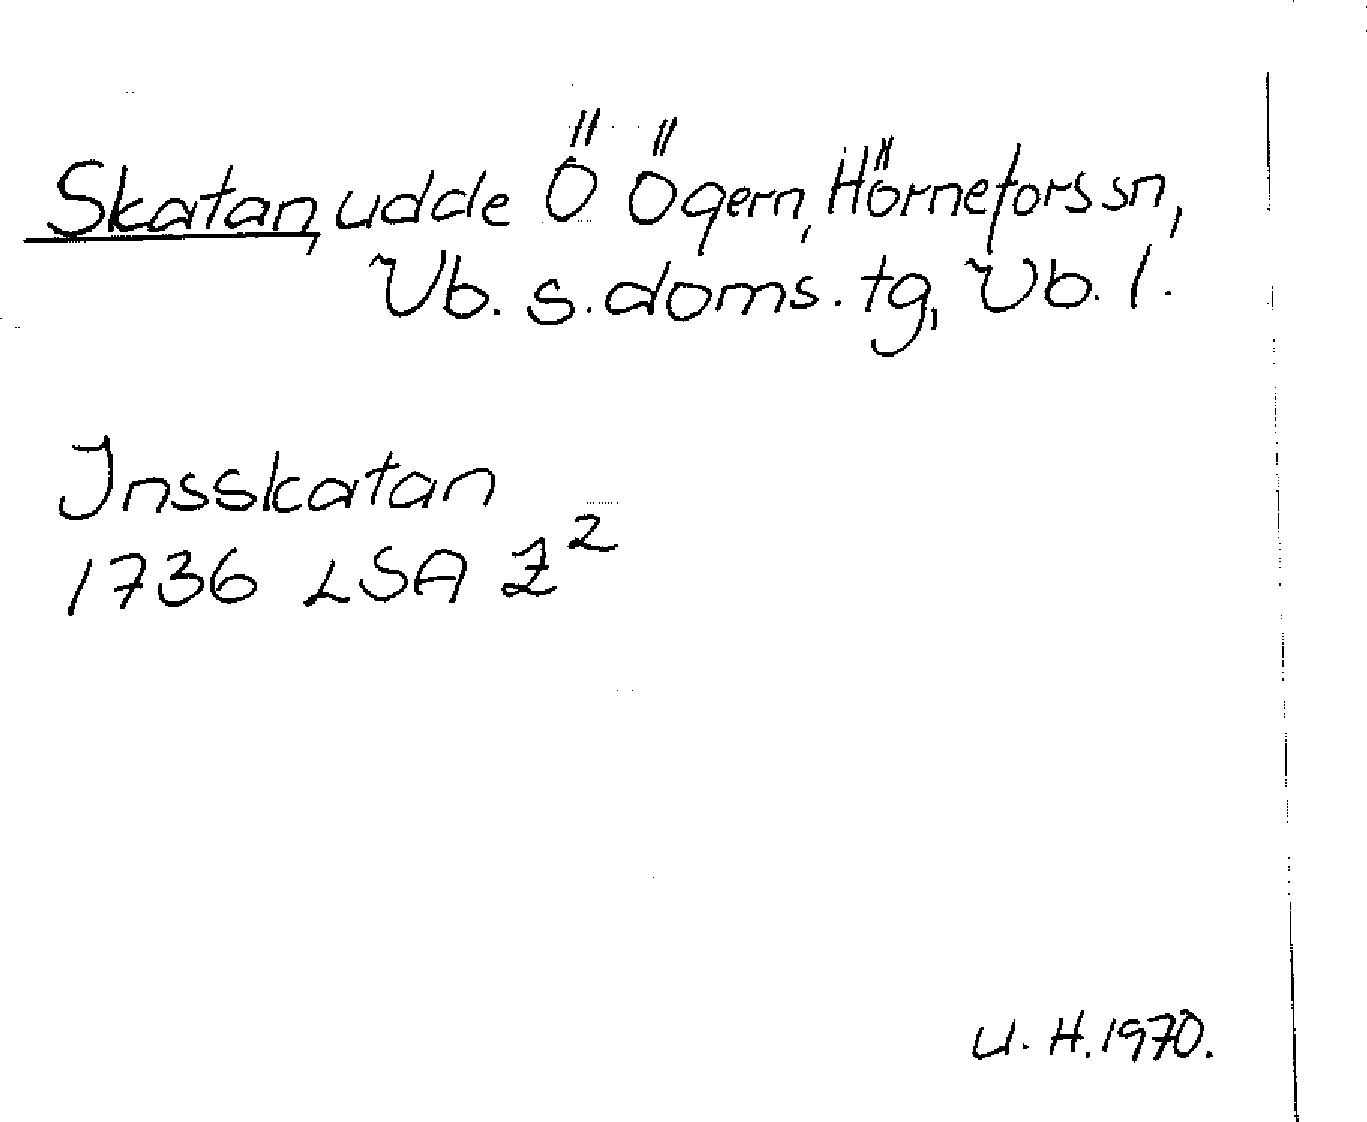 Skatan, udde Ö Ögern, Hörnefors sn,
Vb. s. doms. tg, Vb. l.
Insskatan
1736 LSA Z²
U. H. 1970.